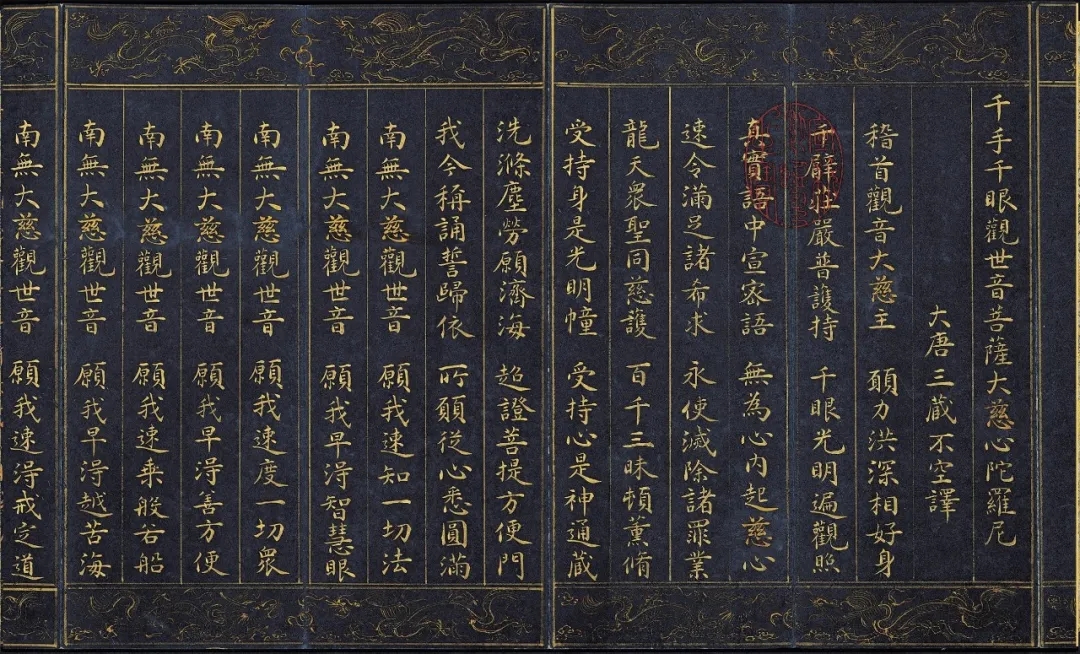 千手千眼觀世音菩薩大慈心陀羅尼
大唐三藏不空譯
稽首觀音大慈主　願力洪深相好身
千臂莊嚴普護持　千眼光明遍觀照
真實語中宣密語　無為心內起慈心
速令滿足諸希求　永使滅除諸罪業
龍天衆聖同慈護　百千三昧頓薰脩
受持身是光明幢　受持心是神通藏
洗滌塵勞願濟海　超證菩提方便門
我今稱誦誓歸依　所願從心悉圓滿
南無大慈觀世音　願我速知一切法
南無大慈觀世音　願我早淂智慧眼
南無大慈觀世音　願我速度一切衆
南無大慈觀世音　願我早淂善方便
南無大慈觀世音　願我速乘般若船
南無大慈觀世音　願我早淂越苦海
南無大慈觀世音　願我速淂戒定道